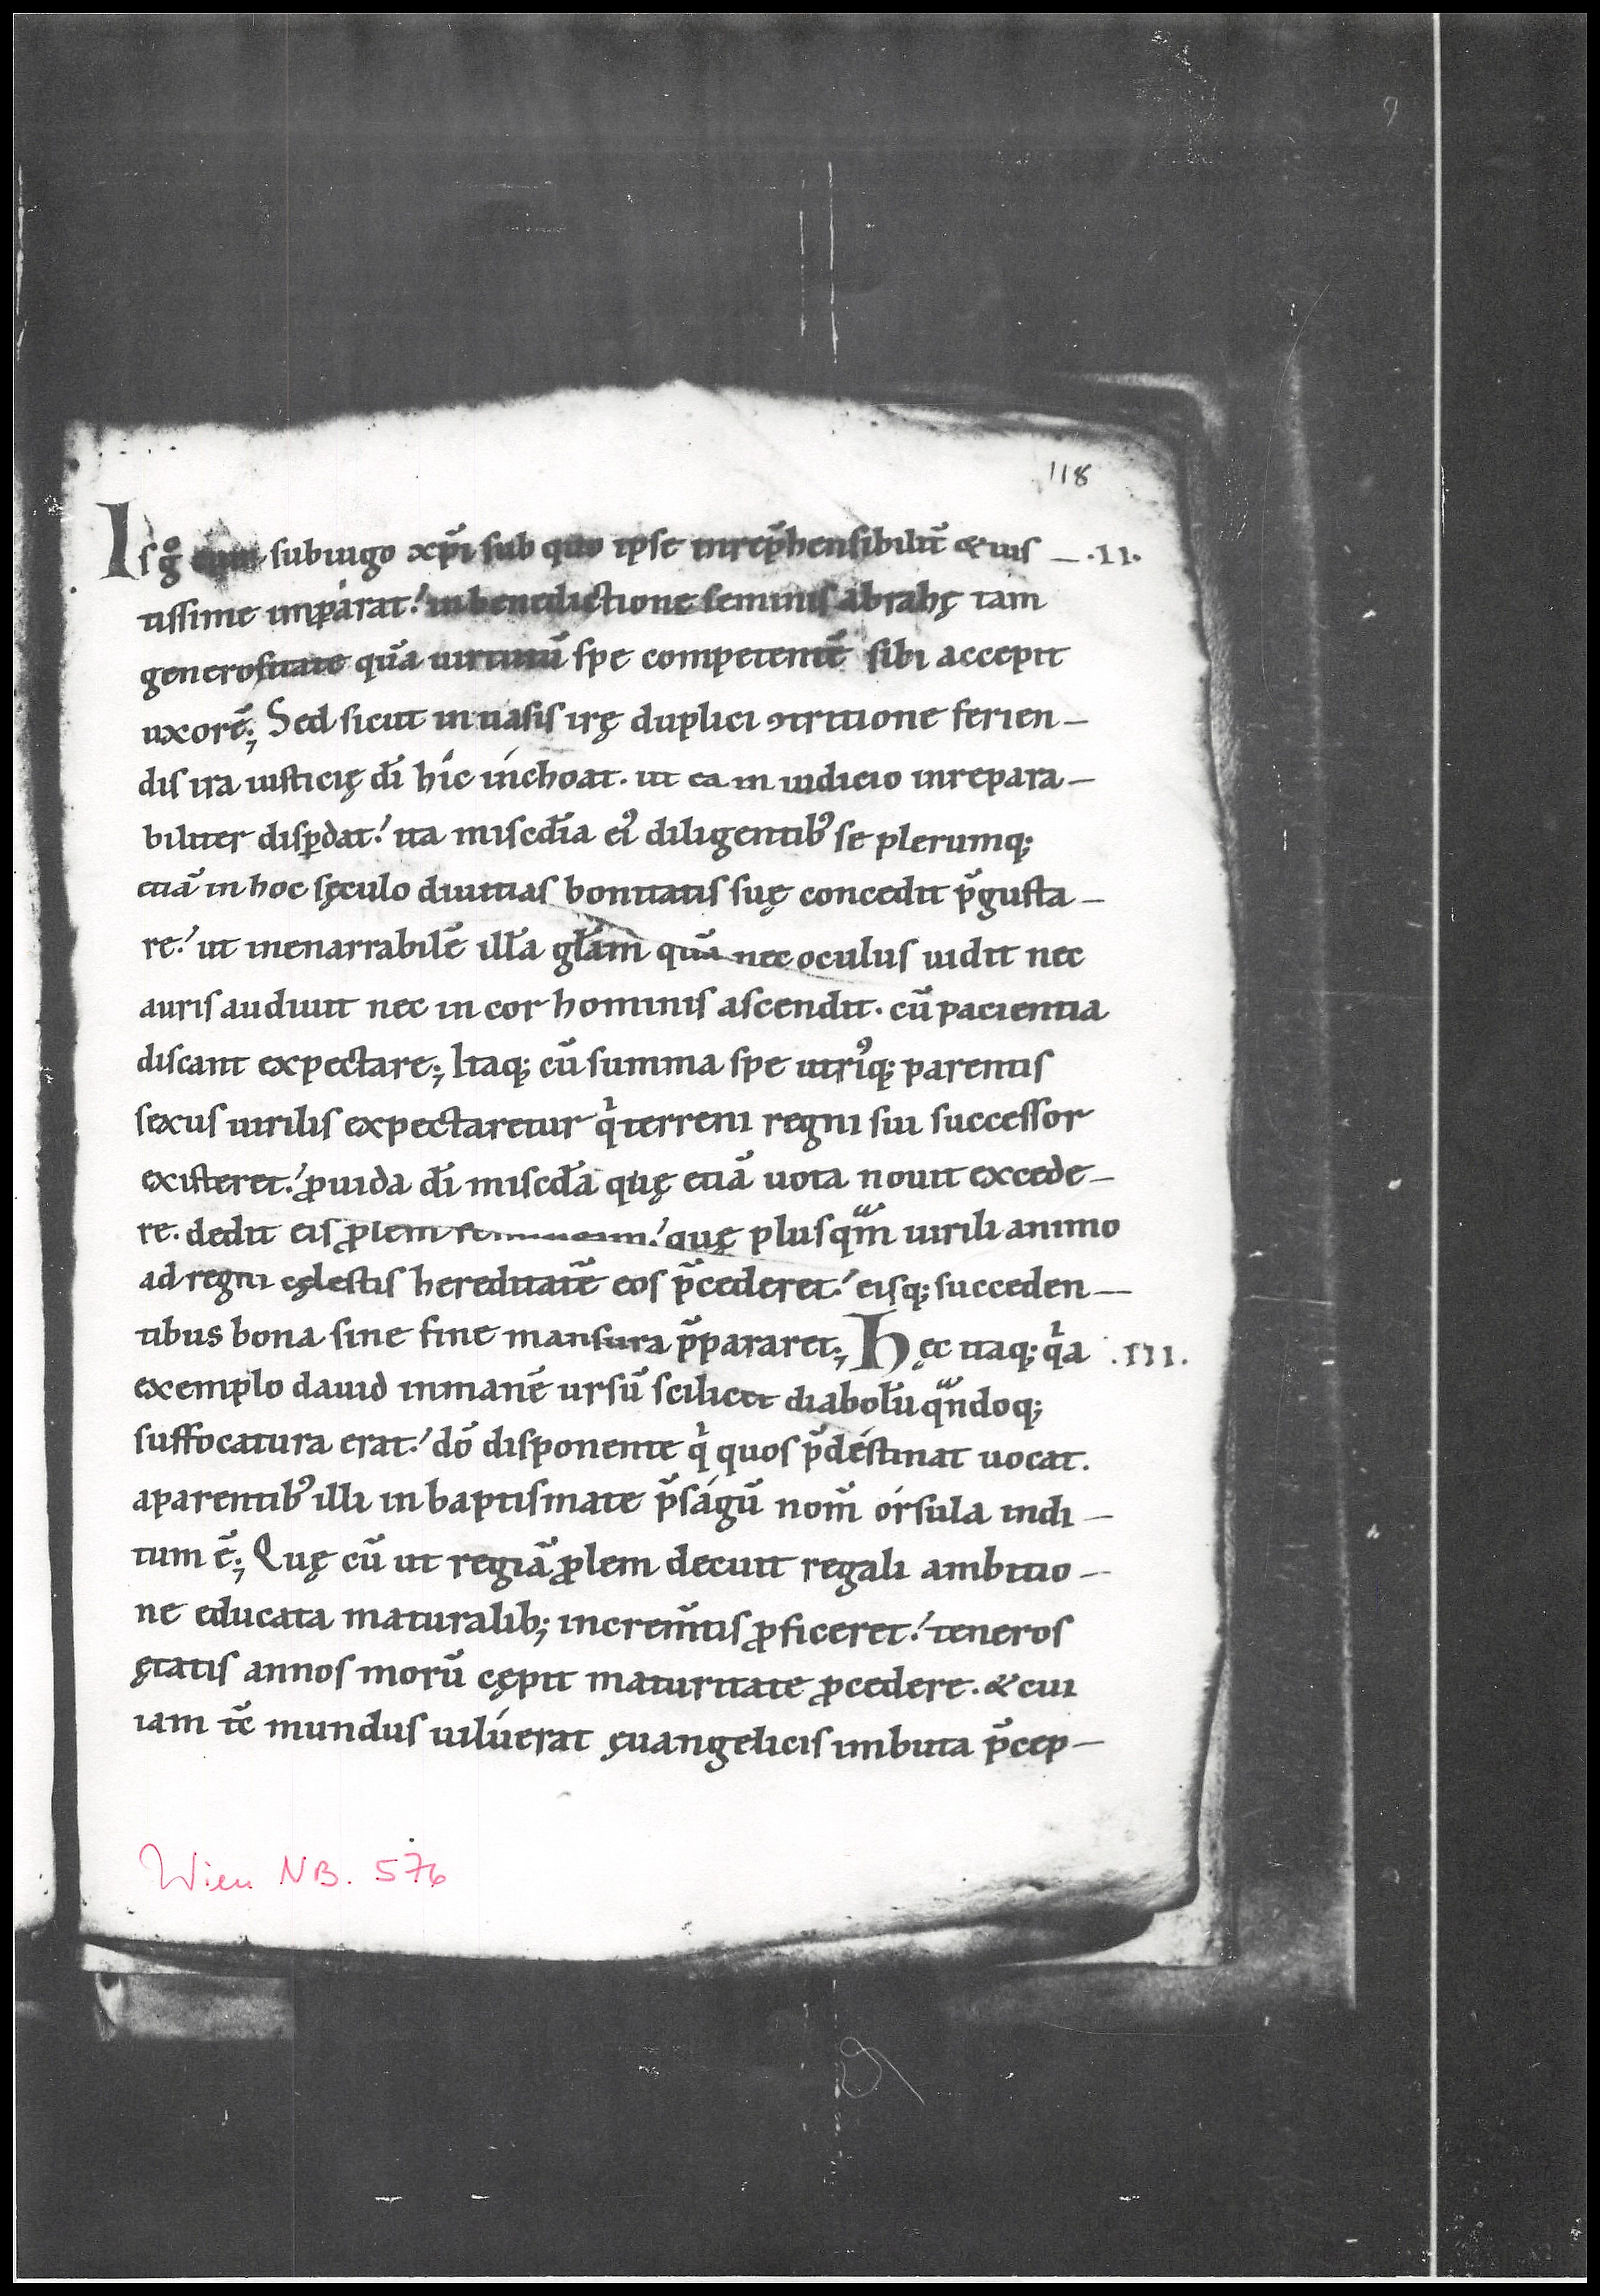 118
Is g̊ subiugo xp̄i sub quo ipse inrep̄hensibilit̄ & ius — .II.
tissime imparat. in benedictione seminis abrahę tam
generositate quā uirtutū spe competentē sibi accepit
uxorē; Sed sicut in uasis irę duplici ꝯtritione ferien–
dis ira iusticię dī hic inchoat. ut ea in iudicio inrepara–
biliter disꝑdat. ita misc̄dia eiꝰ diligentibꝰ se plerumq;
etiā in hoc sęculo diuitias bonitatis suę concedit p̄gusta–
re. ut inenarrabilē illā glām quā nec oculus uidit nec
auris audiuit nec in cor hominis ascendit. cū pacientia
discant expectare; Itaq; cū summa spe utriꝰq; parentis
sexus uirilis expectaretur qͥ terreni regni sui successor
existeret. ꝓuida dī misc̄da quę etiā uota nouit excede–
re. dedit eis ꝓlem quę plusqͣm uirili animo
ad regni cęlestis hereditatē eos p̄cederet. eisq; succeden–
tibus bona sine fine mansura p̄pararet; Hęc itaq; qͥa .III.
exemplo dauid inmanē ursū scilicet diabolū qͣndoq;
suffocatura erat. dō disponente qͥ quos p̄destinat uocat.
aparentibꝰ illi in baptismate p̄sagū nom̄ órsula indi–
tum ē; Quę cū ut regiā ꝓlem decuit regali ambitio–
ne educata maturalib; increm̄tis ꝓficeret. teneros
ętatis annos morū cępit maturitate ꝓcedere. & cui
iam tc̄ mundus uilúerat ęuangelicis imbuta p̄cep–
Wien NB. 576